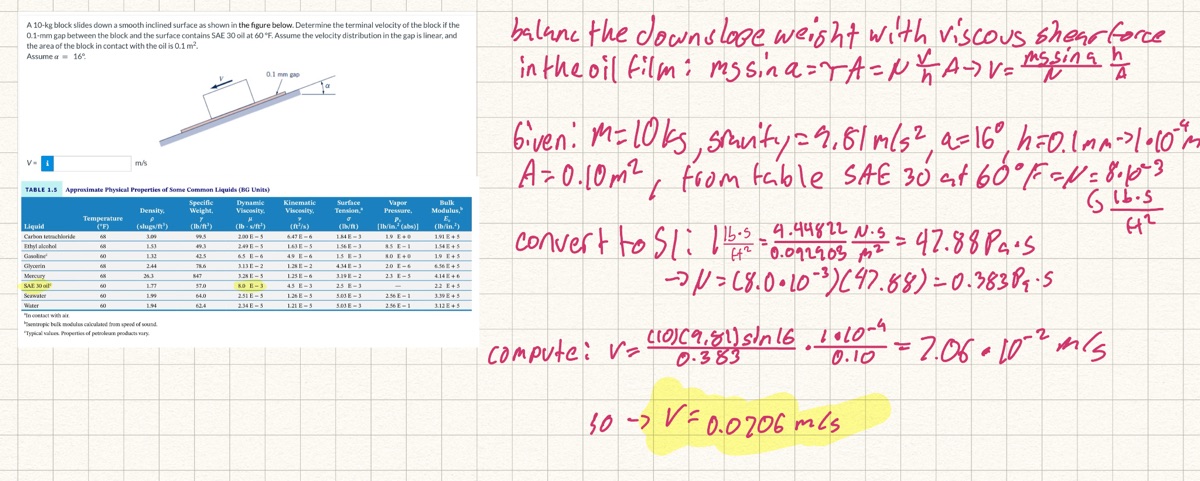 A 10-kg block slides down a smooth inclined surface as shown in the figure below. Determine the terminal velocity of the block if the
0.1-mm gap between the block and the surface contains SAE 30 oil at 60 °F. Assume the velocity distribution in the gap is linear, and
the area of the block in contact with the oil is 0.1 m².
Assume α = 16°.
V
0.1 mm gap
α
V = i m/s
TABLE 1.5 Approximate Physical Properties of Some Common Liquids (BG Units)
Liquid | Temperature (°F) | Density, ρ (slugs/ft³) | Specific Weight, γ (lb/ft³) | Dynamic Viscosity, μ (lb · s/ft²) | Kinematic Viscosity, ν (ft²/s) | Surface Tension,ᵃ σ (lb/ft) | Vapor Pressure, pᵥ [lb/in.² (abs)] | Bulk Modulus,ᵇ Eᵥ (lb/in.²)
Carbon tetrachloride 68 3.09 99.5 2.00 E − 5 6.47 E − 6 1.84 E − 3 1.9 E + 0 1.91 E + 5
Ethyl alcohol 68 1.53 49.3 2.49 E − 5 1.63 E − 5 1.56 E − 3 8.5 E − 1 1.54 E + 5
Gasolineᶜ 60 1.32 42.5 6.5 E − 6 4.9 E − 6 1.5 E − 3 8.0 E + 0 1.9 E + 5
Glycerin 68 2.44 78.6 3.13 E − 2 1.28 E − 2 4.34 E − 3 2.0 E − 6 6.56 E + 5
Mercury 68 26.3 847 3.28 E − 5 1.25 E − 6 3.19 E − 2 2.3 E − 5 4.14 E + 6
SAE 30 oilᶜ 60 1.77 57.0 8.0 E − 3 4.5 E − 3 2.5 E − 3 — 2.2 E + 5
Seawater 60 1.99 64.0 2.51 E − 5 1.26 E − 5 5.03 E − 3 2.56 E − 1 3.39 E + 5
Water 60 1.94 62.4 2.34 E − 5 1.21 E − 5 5.03 E − 3 2.56 E − 1 3.12 E + 5
ᵃIn contact with air.
ᵇIsentropic bulk modulus calculated from speed of sound.
ᶜTypical values. Properties of petroleum products vary.
balanc the downslope weight with viscous shear force
in the oil film: mg sin a = τA = μ V/h A → V = mg sin a/μ h/A
Given: m=10kg, gravity=9.81 m/s², a=16°, h=0.1mm → 1•10⁻⁴m
A=0.10m², from table SAE 30 at 60°F = μ = 8•10⁻³
↳ lb·s/ft²
convert to SI: 1 lb·s/ft² = 4.44822/0.092903 N·s/m² = 47.88 Pa·s
→ μ = (8.0•10⁻³)(47.88) = 0.383 Pa·s
compute: V = (10)(9.81)sin16/0.383 · 1•10⁻⁴/0.10 = 7.06 • 10⁻² m/s
so → V = 0.0706 m/s